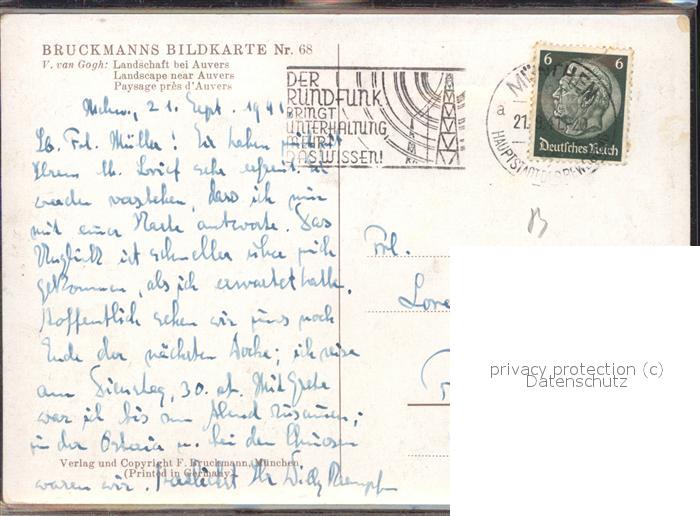 BRUCKMANNS BILDKARTE Nr. 68
V. van Gogh: Landschaft bei Auvers
Landscape near Auvers
Paysage près d'Auvers
DER
RUNDFUNK
BRINGT
UNTERHALTUNG
DAS WISSEN!
MÜNCHEN
a
21.
HAUPTSTADT
6 6
Deutsches Reich
21. Sept. 1941
Lb. Frl. Müller! Sie haben
Ihrem lb. sehr erfreut. Sie
werden verstehen, dass ich nur
mit einer Karte antworte. Das
Unglück ist schneller über mich
gekommen, als ich erwartet hatte.
Hoffentlich sehen wir uns noch
Ende der nächsten Woche; ich reise
am Dienstag, 30. ab. Mit Grete
war ich bis am Abend zusammen;
in der Osteria u. bei den Chinesen
waren wir. Ihr Willy
Frl.
Verlag und Copyright F. Bruckmann, München.
(Printed in Germany)
privacy protection (c)
Datenschutz